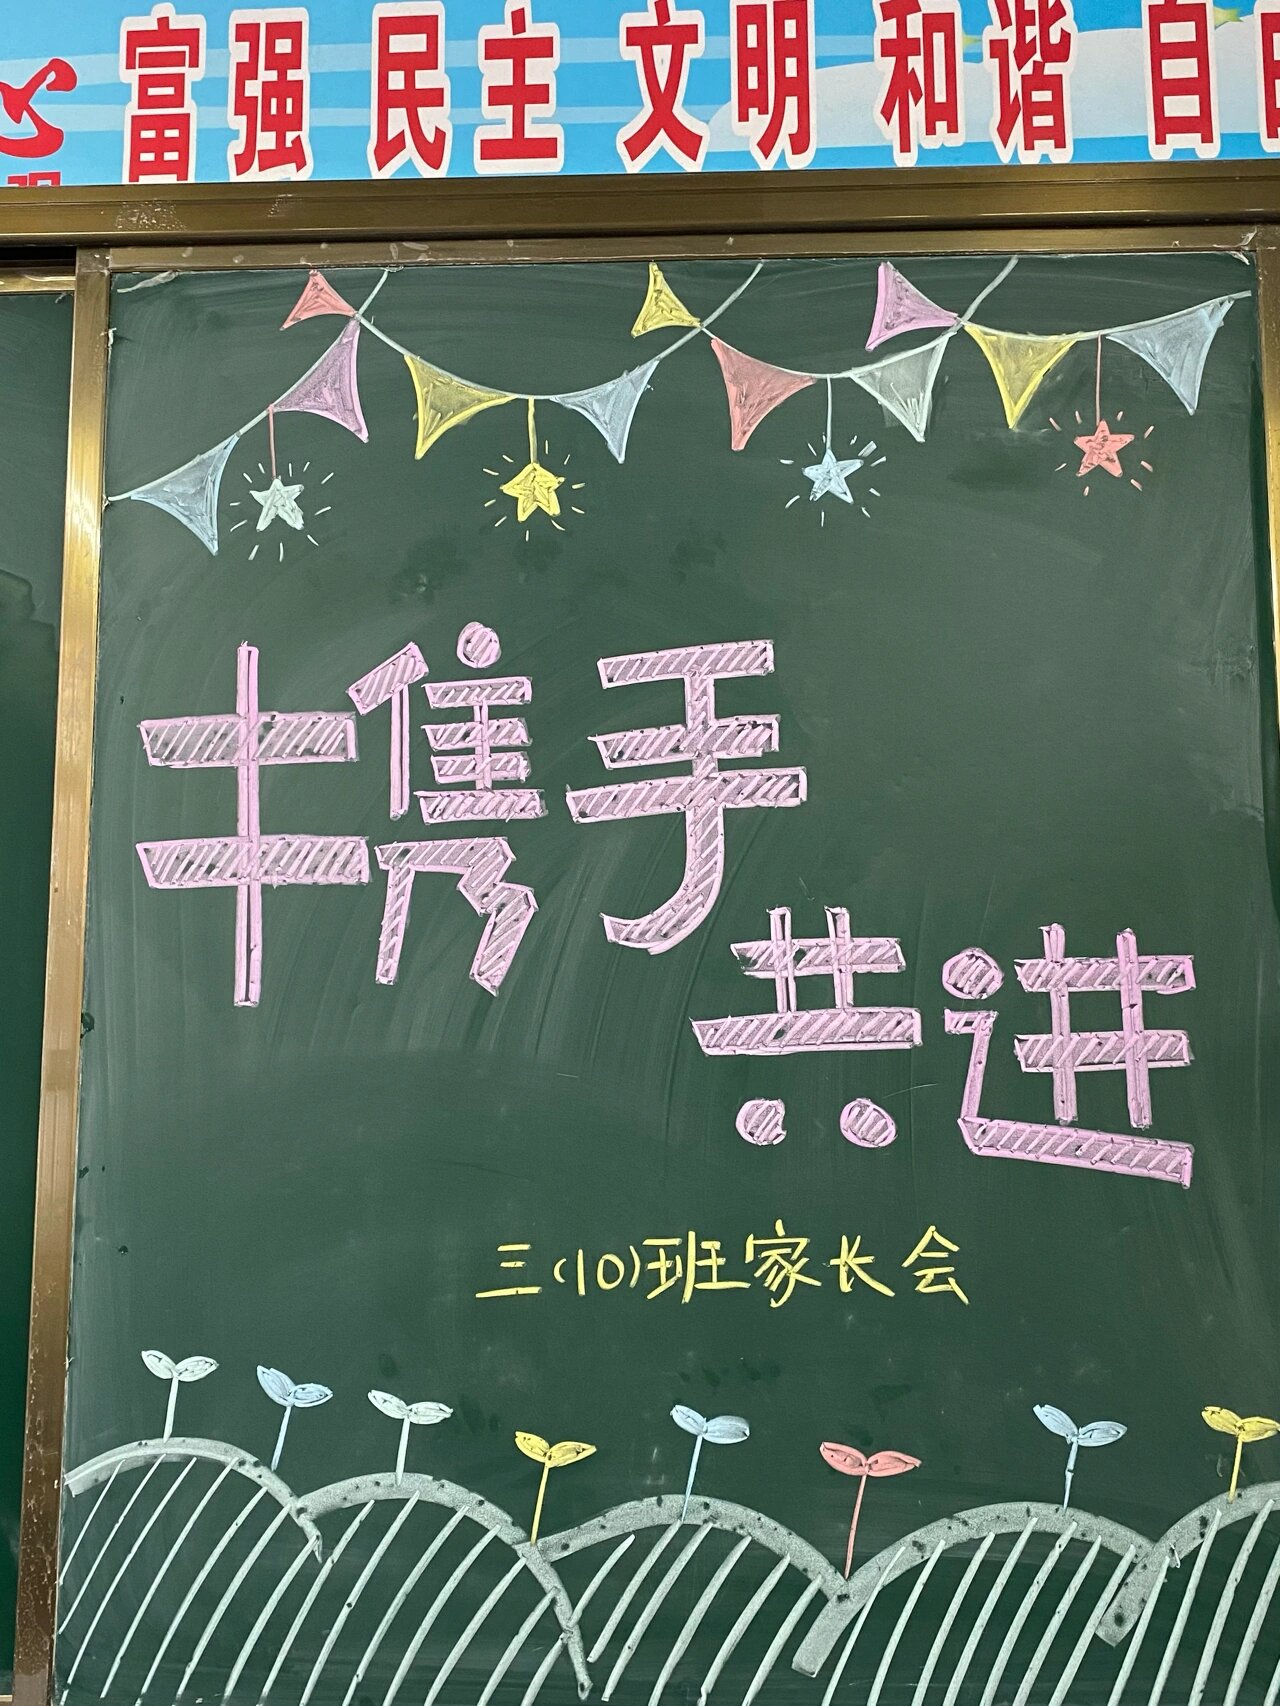 富强 民主 文明 和谐 自由
携手
共进
三(10)班家长会